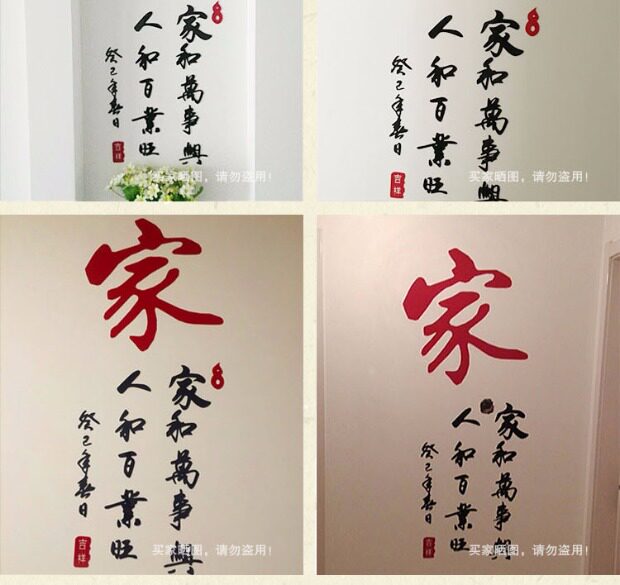 家和萬事興
人和百業旺
癸巳年春日
吉祥
买家晒图，请勿盗用!
家和萬事興
人和百業旺
癸巳年春日
吉祥
买家晒图，请勿盗用!
家
家和萬事興
人和百業旺
癸巳年春日
吉祥
买家晒图，请勿盗用!
家
家和萬事興
人和百業旺
癸巳年春日
吉祥
买家晒图，请勿盗用!